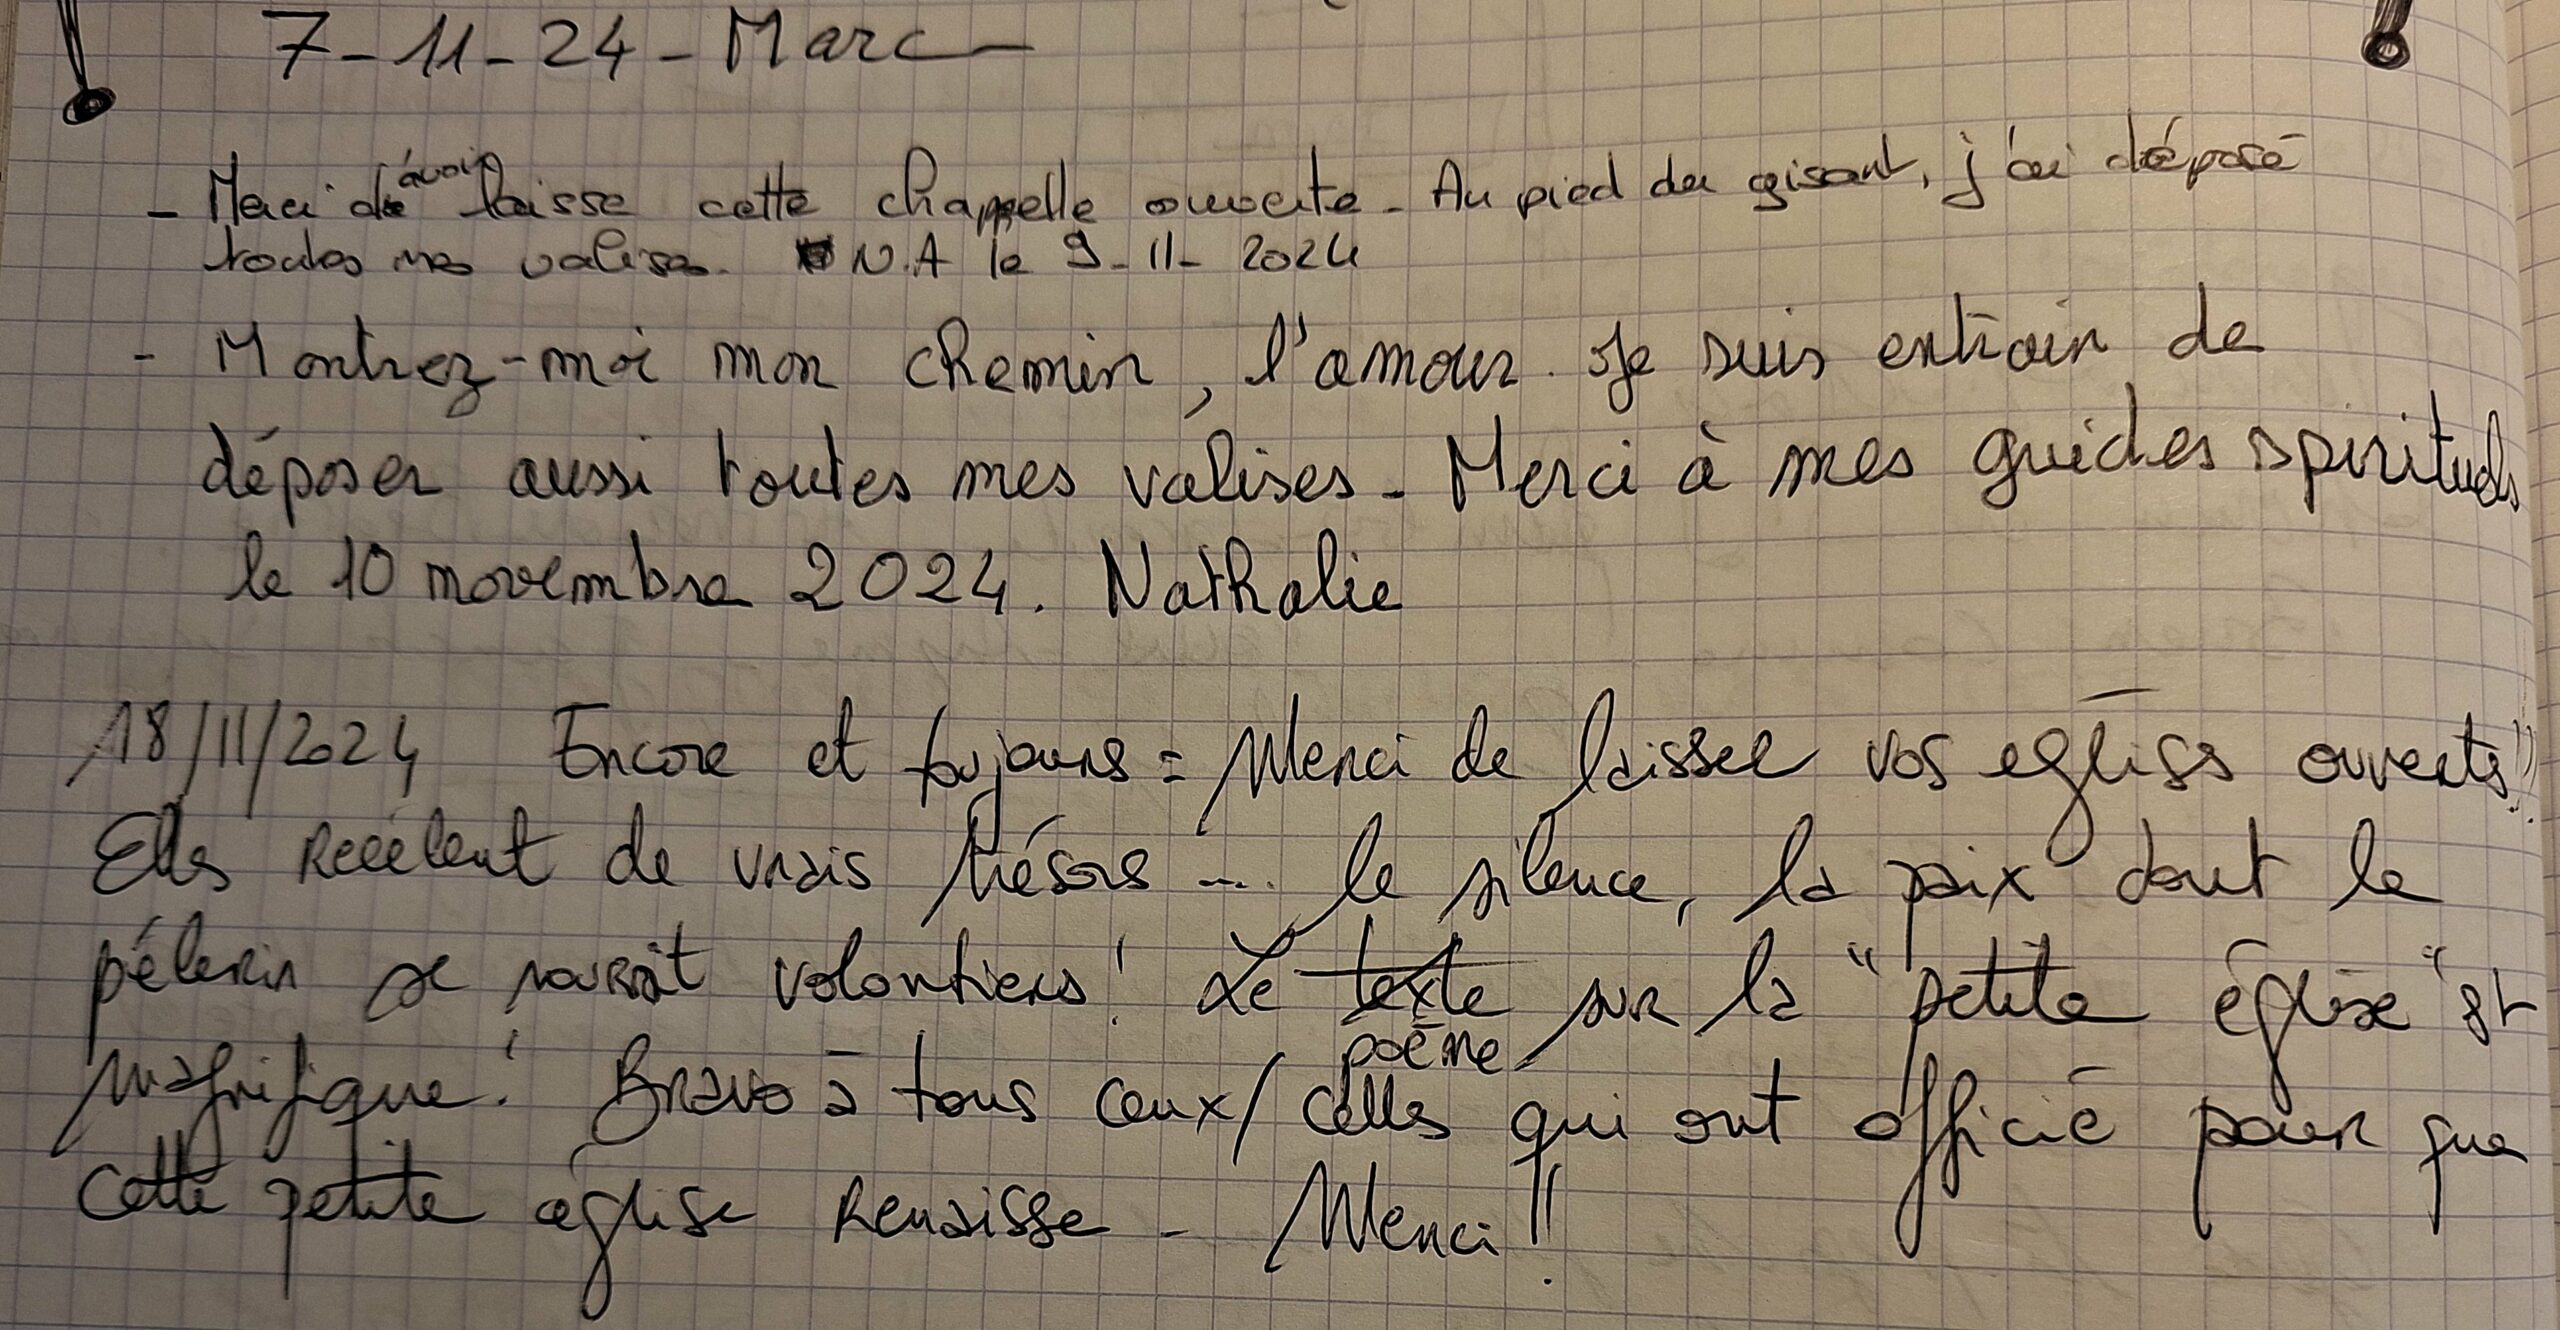 7-11-24- Marc
- Merci d'avoir laisse cette chappelle ouverte - Au pied du gisant, j'ai déposé
toutes mes valises. N.A le 9-11-2024
- Montrez-moi mon chemin, l'amour. Je suis entrain de
déposer aussi toutes mes valises - Merci à mes guides spirituels
le 10 novembre 2024. Nathalie
18/11/2024 Encore et toujours = Merci de laisser vos églises ouvertes!!
Elles recèlent de vrais trésors ... le silence, la paix dont le
pélerin se nourrit volontiers! Le texte sur la "petite église" est
poème
magnifique! Bravo à tous ceux/celles qui ont officié pour que
cette petite église renaisse - Merci!!